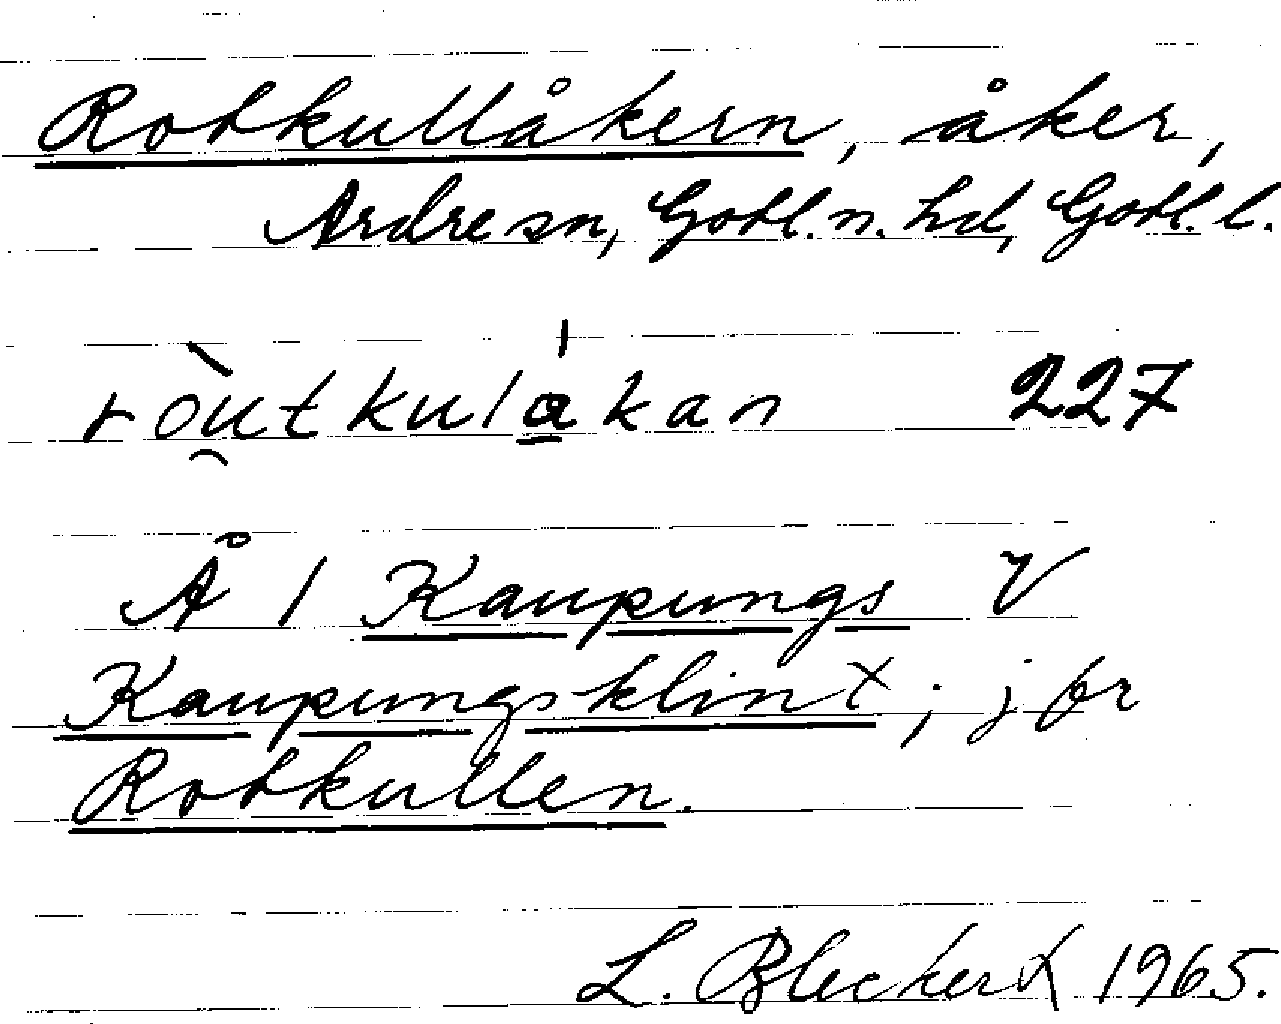 Rotkullåkern, åker,
Ardre sn, Gotl. n. hd, Gotl. l.
ròu̯tkulá̱kan 227
Å 1 Kaupungs V
Kaupungsklint; jfr
Rotkullen.
L. Bleckert 1965.